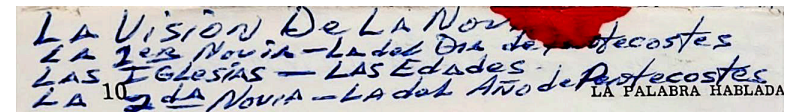 LA VISIÓN DE LA NOV
LA 1era NOVIA - LA del Dia de Pentecostes
LAS IGLESIAS - LAS EDADES.
LA 2da NOVIA - LA del AÑO de Pentecostes
10 LA PALABRA HABLADA